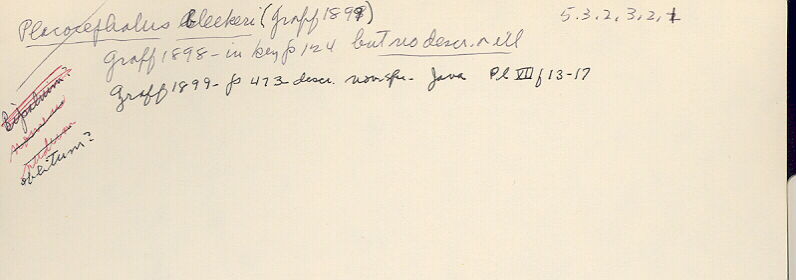 Placocephalus bleekeri (Graff 1899) 5.3.2,3,2,1
Graff 1898 - in key p 124 but no descr. n ill
Graff 1899 - p 473 descr. nov. spe. - Java Pl VII f 13-17
Bipalium?
oblitum?